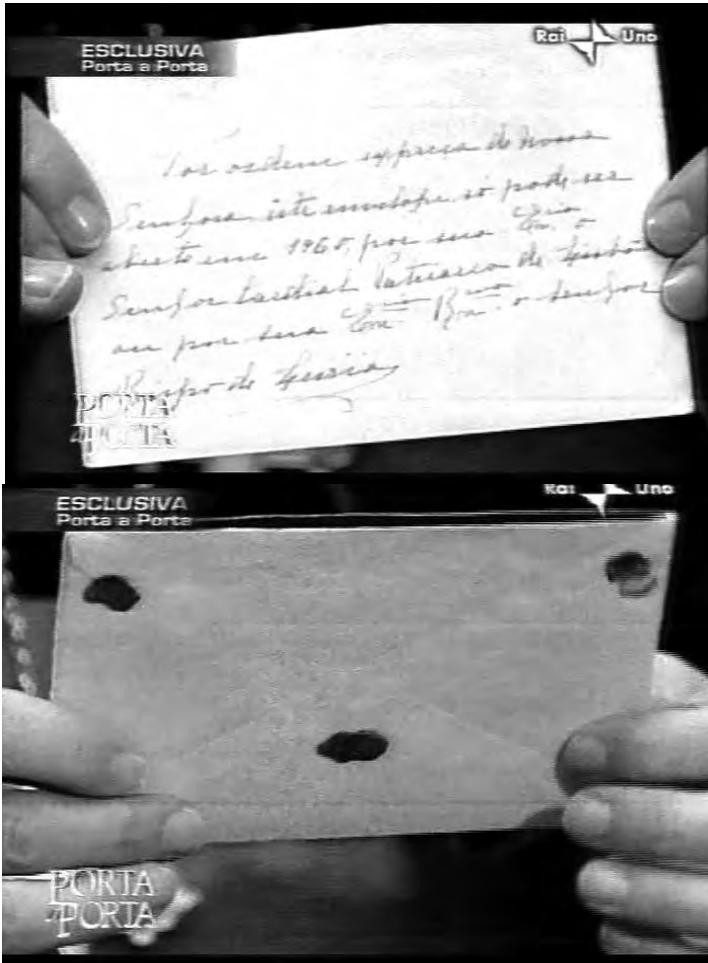 ESCLUSIVA
Porta a Porta
Rai Uno
Por ordem expressa de Nossa
Senhora este envelope só pode ser
aberto em 1960, por sua Emcia o
Senhor Cardial Patriarca de Lisboa
ou por sua Excia Rma o Senhor
Bispo de Leiria
PORTA
a PORTA
ESCLUSIVA
Porta a Porta
Rai Uno
PORTA
a PORTA